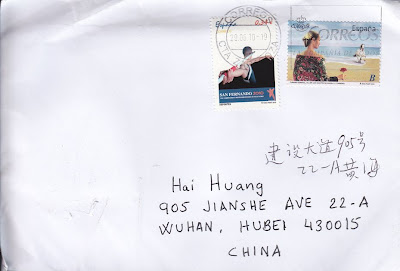 CORREOS
23.06.10-19
España
CORREOS
SAN FERNANDO 2010
B
建设大道905号
22-A黄海
Hai Huang
905 JIANSHE AVE 22-A
WUHAN, HUBEI 430015
CHINA